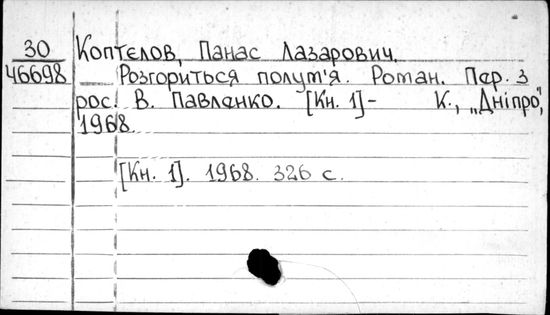 30
46698
Коптєлов, Панас Лазарович.
Розгориться полум'я. Роман. Пер. з
рос. В. Павленко. [Кн. 1]- К., „Дніпро",
1968.
[Кн. 1]. 1968. 326 с.